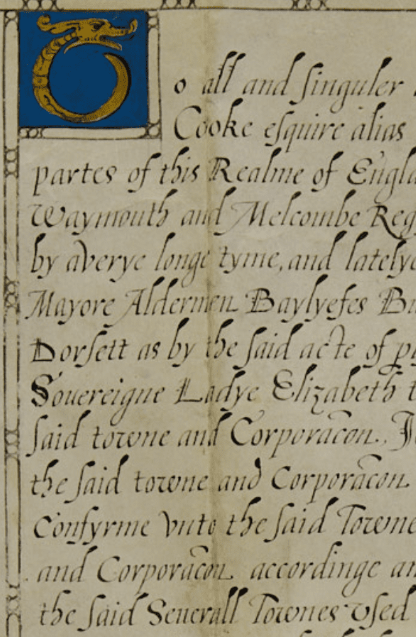 To all and singuler
Cooke esquire alias
partes of this Realme of Engla
Waymouth and Melcombe Reg
by averye longe tyme, and latelye
Mayore Aldermen Baylyefes
Dorsett as by the said acte of
Sovereigne Ladye Elizabeth
said towne and Corporac̃on.
the said towne and Corporac̃on
Confyrme vnto the said Towne
and Corporac̃on accordinge an
the said Severall Townes vsed